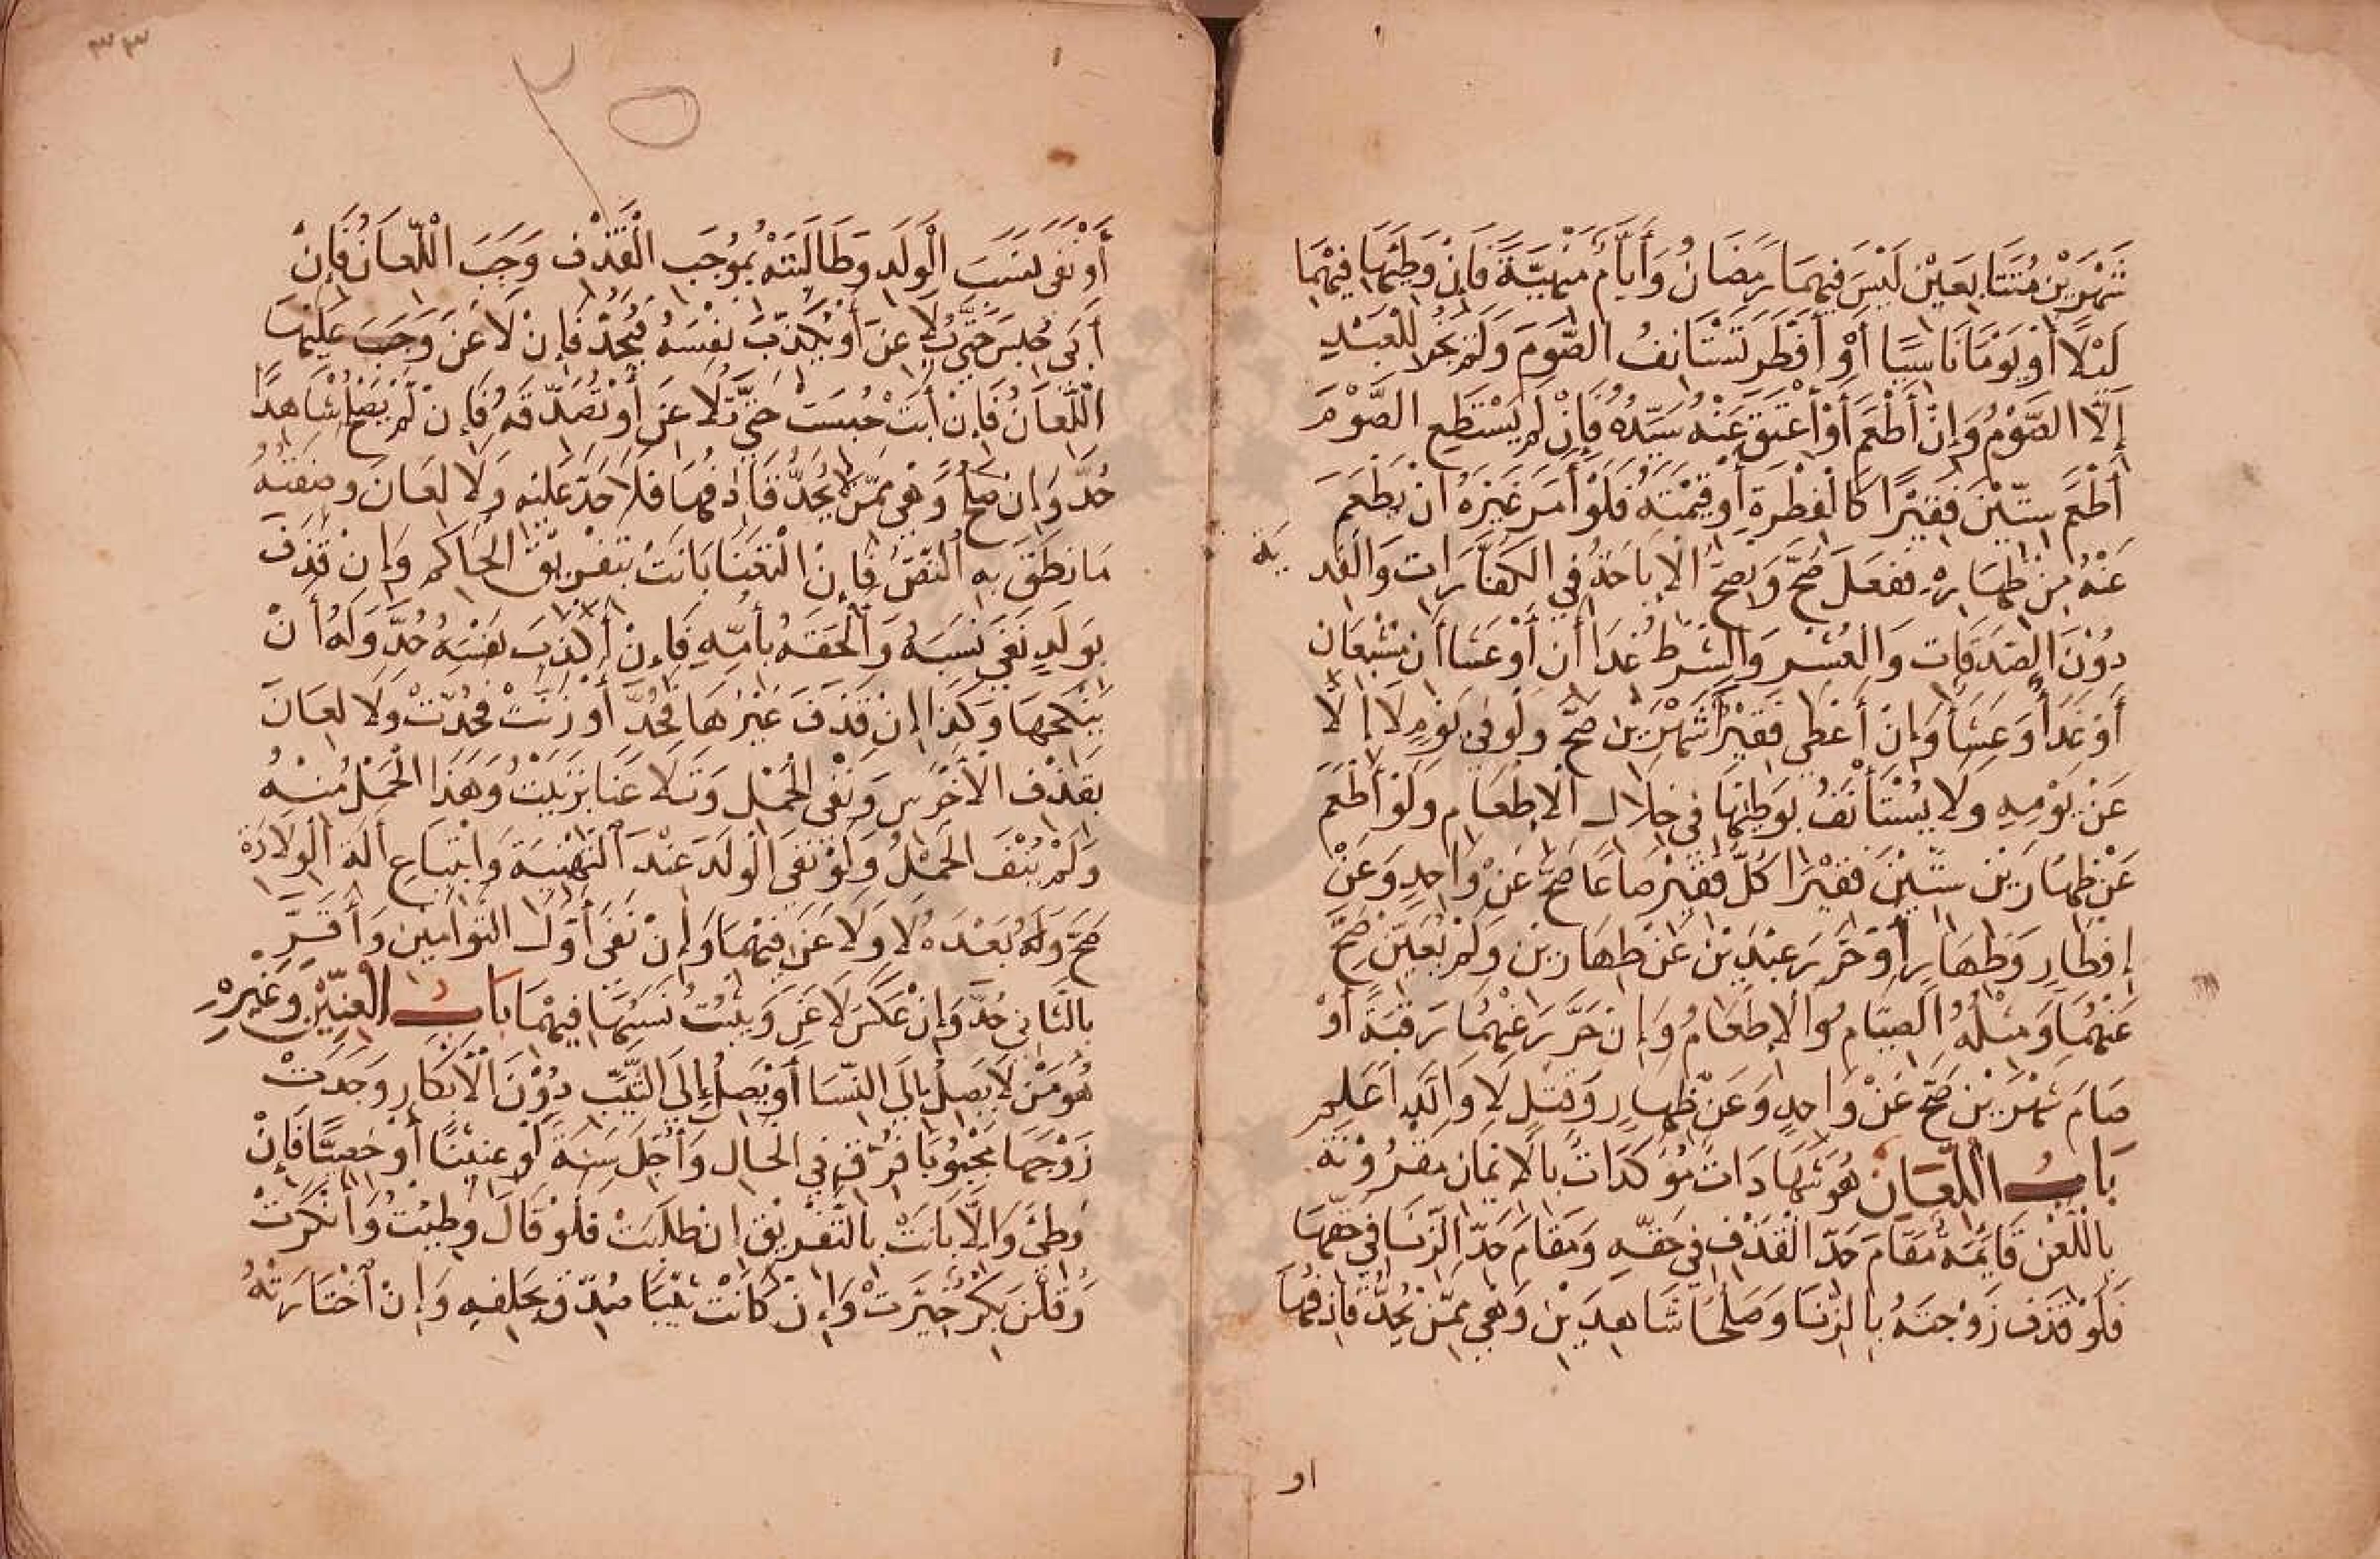 شَهْرَيْنِ مُتَتَابِعَيْنِ لَيْسَ فِيهِمَا رَمَضَانُ وَأَيَّامٌ مَنْهِيَّةٌ فَإِنْ وَطِئَهَا فِيْهِمَا
لَيْلًا أَوْ يَوْمًا نَاسِيًا أَوْ أَفْطَرَ تَسْتَانِفُ الصَّوْمَ وَلَمْ يَجُزْ لِلْعَبْدِ
إِلَّا الصَّوْمُ وَإِنْ أَطْعَمَ أَوْ أَعْتَقَ عَنْهُ سَيِّدُهُ فَإِنْ لَمْ يَسْتَطِعِ الصَّوْمَ
أَطْعَمَ سِتِّيْنَ فَقِيْرًا كَالْفِطْرَةِ أَوْ قِيْمَتَهُ فَلَوْ أَمَرَ غَيْرَهُ أَنْ يُطْعِمَ
عَنْهُ مِنْ ظِهَارِهِ فَفَعَلَ صَحَّ وَتَصِحُّ الْإِبَاحَةُ فِي الْكَفَّارَاتِ وَالْفِدْ
يَةِ
دُوْنَ الصَّدَقَاتِ وَالْعُشْرِ وَالشَّرْطُ غَدَاآنِ أَوْ عَشَاآنِ مُشْبِعَانِ
أَوْ غَدَاً وَعَشَاً وَإِنْ أَعْطَى فَقِيْرًا شَهْرَيْنِ صَحَّ وَلَوْ فِي يَوْمٍ لَا إِلَّا
عَنْ يَوْمِهِ وَلَا يَسْتَأْنِفُ بِوَطْئِهَا فِي خِلَالِ الْإِطْعَامِ وَلَوْ أَطْعَمَ
عَنْ ظِهَارَيْنِ سِتِّيْنَ فَقِيْرًا كُلَّ فَقِيْرٍ صَاعًا صَحَّ عَنْ وَاحِدٍ وَعَنْ
إِفْطَارٍ وَظِهَارٍ أَوْ حَرَّرَ عَبْدَيْنِ عَنْ ظِهَارَيْنِ وَلَمْ يُعَيِّنْ صَحَّ
عَنْهُمَا وَمِثْلُهُ الصِّيَامُ وَالْإِطْعَامُ وَإِنْ حَرَّرَ عَنْهُمَا رَقَبَةً أَوْ
صَامَ شَهْرَيْنِ صَحَّ عَنْ وَاحِدٍ وَعَنْ ظِهَارٍ وَقَتْلٍ لَا وَاللّٰهُ أَعْلَمُ
بَابُ اللِّعَانِ هُوَ شَهَادَاتٌ مُؤَكَّدَاتٌ بِالْإِيْمَانِ مَقْرُوْنَةٌ
بِاللَّعْنِ قَايِمَةٌ مَقَامَ حَدِّ الْقَذْفِ فِي حَقِّهِ وَمَقَامَ حَدِّ الزِّنَا فِي حَقِّهَا
فَلَوْ قَذَفَ زَوْجَتَهُ بِالزِّنَا وَصَلُحَا شَاهِدَيْنِ وَهِيَ مِمَّنْ يُحَدُّ قَاذِفُهَا
او
٣٣
٢٥
أَوْ نَفَى نَسَبَ الْوَلَدِ وَطَالَبَتْهُ بِمُوْجَبِ الْقَذْفِ وَجَبَ اللِّعَانُ فَإِنْ
أَبَى حُبِسَ حَتَّى يُلَاعِنَ أَوْ يُكَذِّبَ نَفْسَهُ فَيُحَدُّ فَإِنْ لَاعَنَ وَجَبَ عَلَيْهَا
اللِّعَانُ فَإِنْ أَبَتْ حُبِسَتْ حَتَّى تُلَاعِنَ أَوْ تُصَدِّقَهُ فَإِنْ لَمْ يَصْلُحْ شَاهِدًا
حُدَّ وَإِنْ صَلُحَ وَهِيَ مِمَّنْ لَا يُحَدُّ قَاذِفُهَا فَلَا حَدَّ عَلَيْهِ وَلَا لِعَانَ وَصِفَتُهُ
مَا نَطَقَ بِهِ النَّصُّ فَإِنْ الْتَعَنَا بَانَتْ بِتَفْرِيْقِ الْحَاكِمِ وَإِنْ قَذَفَ
بِوَلَدٍ نَفَى نَسَبَهُ وَأَلْحَقَهُ بِأُمِّهِ فَإِنْ أَكْذَبَ نَفْسَهُ حُدَّ وَلَهُ أَنْ
يَنْكِحَهَا وَكَذَا إِنْ قَذَفَ غَيْرَهَا فَحُدَّ أَوْ زَنَتْ فَحُدَّتْ وَلَا لِعَانَ
بِقَذْفِ الْأَخْرَسِ وَنَفْيِ الْحَمْلِ وَتَلَاعَنَا بِزَنَيْتِ وَهَذَا الْحَمْلُ مِنْهُ
وَلَمْ يُنْفَ الْحَمْلُ وَلَوْ نَفَى الْوَلَدَ عِنْدَ التَّهْنِيَةِ وَابْتِيَاعِ آلَةِ الْوِلَادَةِ
صَحَّ وَلَهُ بَعْدَهُ لَا وَلَاعَنَ فِيْهِمَا وَإِنْ نَفَى أَوَّلَ التَّوْأَمَيْنِ وَأَقَرَّ
بِالثَّانِي حُدَّ وَإِنْ عَكَسَ لَاعَنَ وَيَثْبُتُ نَسَبُهُمَا فِيْهِمَا بَابُ الْعِنِّيْنِ وَغَيْرِهِ
هُوَ مَنْ لَا يَصِلُ إِلَى النِّسَا أَوْ يَصِلُ إِلَى الثَّيِّبِ دُوْنَ الْأَبْكَارِ وَجَدَتْ
زَوْجَهَا مَجْبُوْبًا فُرِّقَ فِي الْحَالِ وَأُجِّلَ سَنَةً لَوْ عِنِّيْنًا أَوْ خَصِيًّا فَإِنْ
وَطِئَ وَإِلَّا بَانَتْ بِالتَّفْرِيْقِ إِنْ طَلَبَتْ فَلَوْ قَالَ وَطِيْتُ وَأَنْكَرَتْ
وَقُلْنَ بِكْرٌ خُيِّرَتْ وَإِنْ كَانَتْ ثَيِّبًا صُدِّقَ بِحَلِفِهِ وَإِنْ اخْتَارَتْهُ